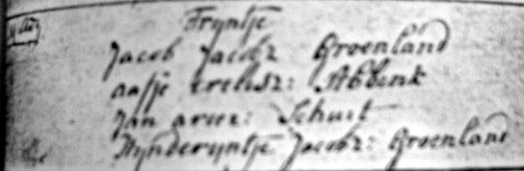 Trijntje
Jacob Jacobz Groenland
aafje Crelisz: Abbink
Jan ariez: Schuit
Jacobz: Groenland